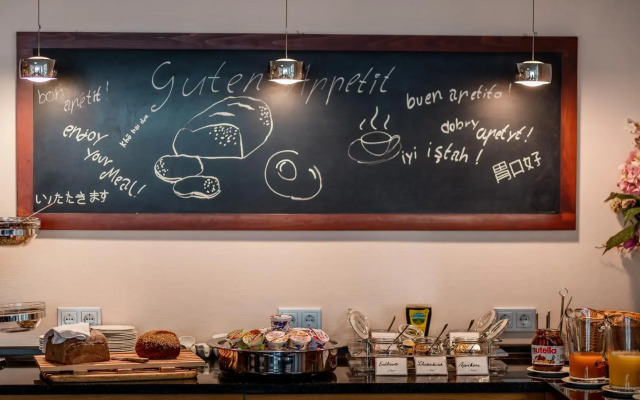 Guten Appetit
bon apetit!
enjoy
your Meal!
いただきます
buen apetito!
dobry
apetyt!
iyi iştah!
胃口好
nutella
Erdbeere